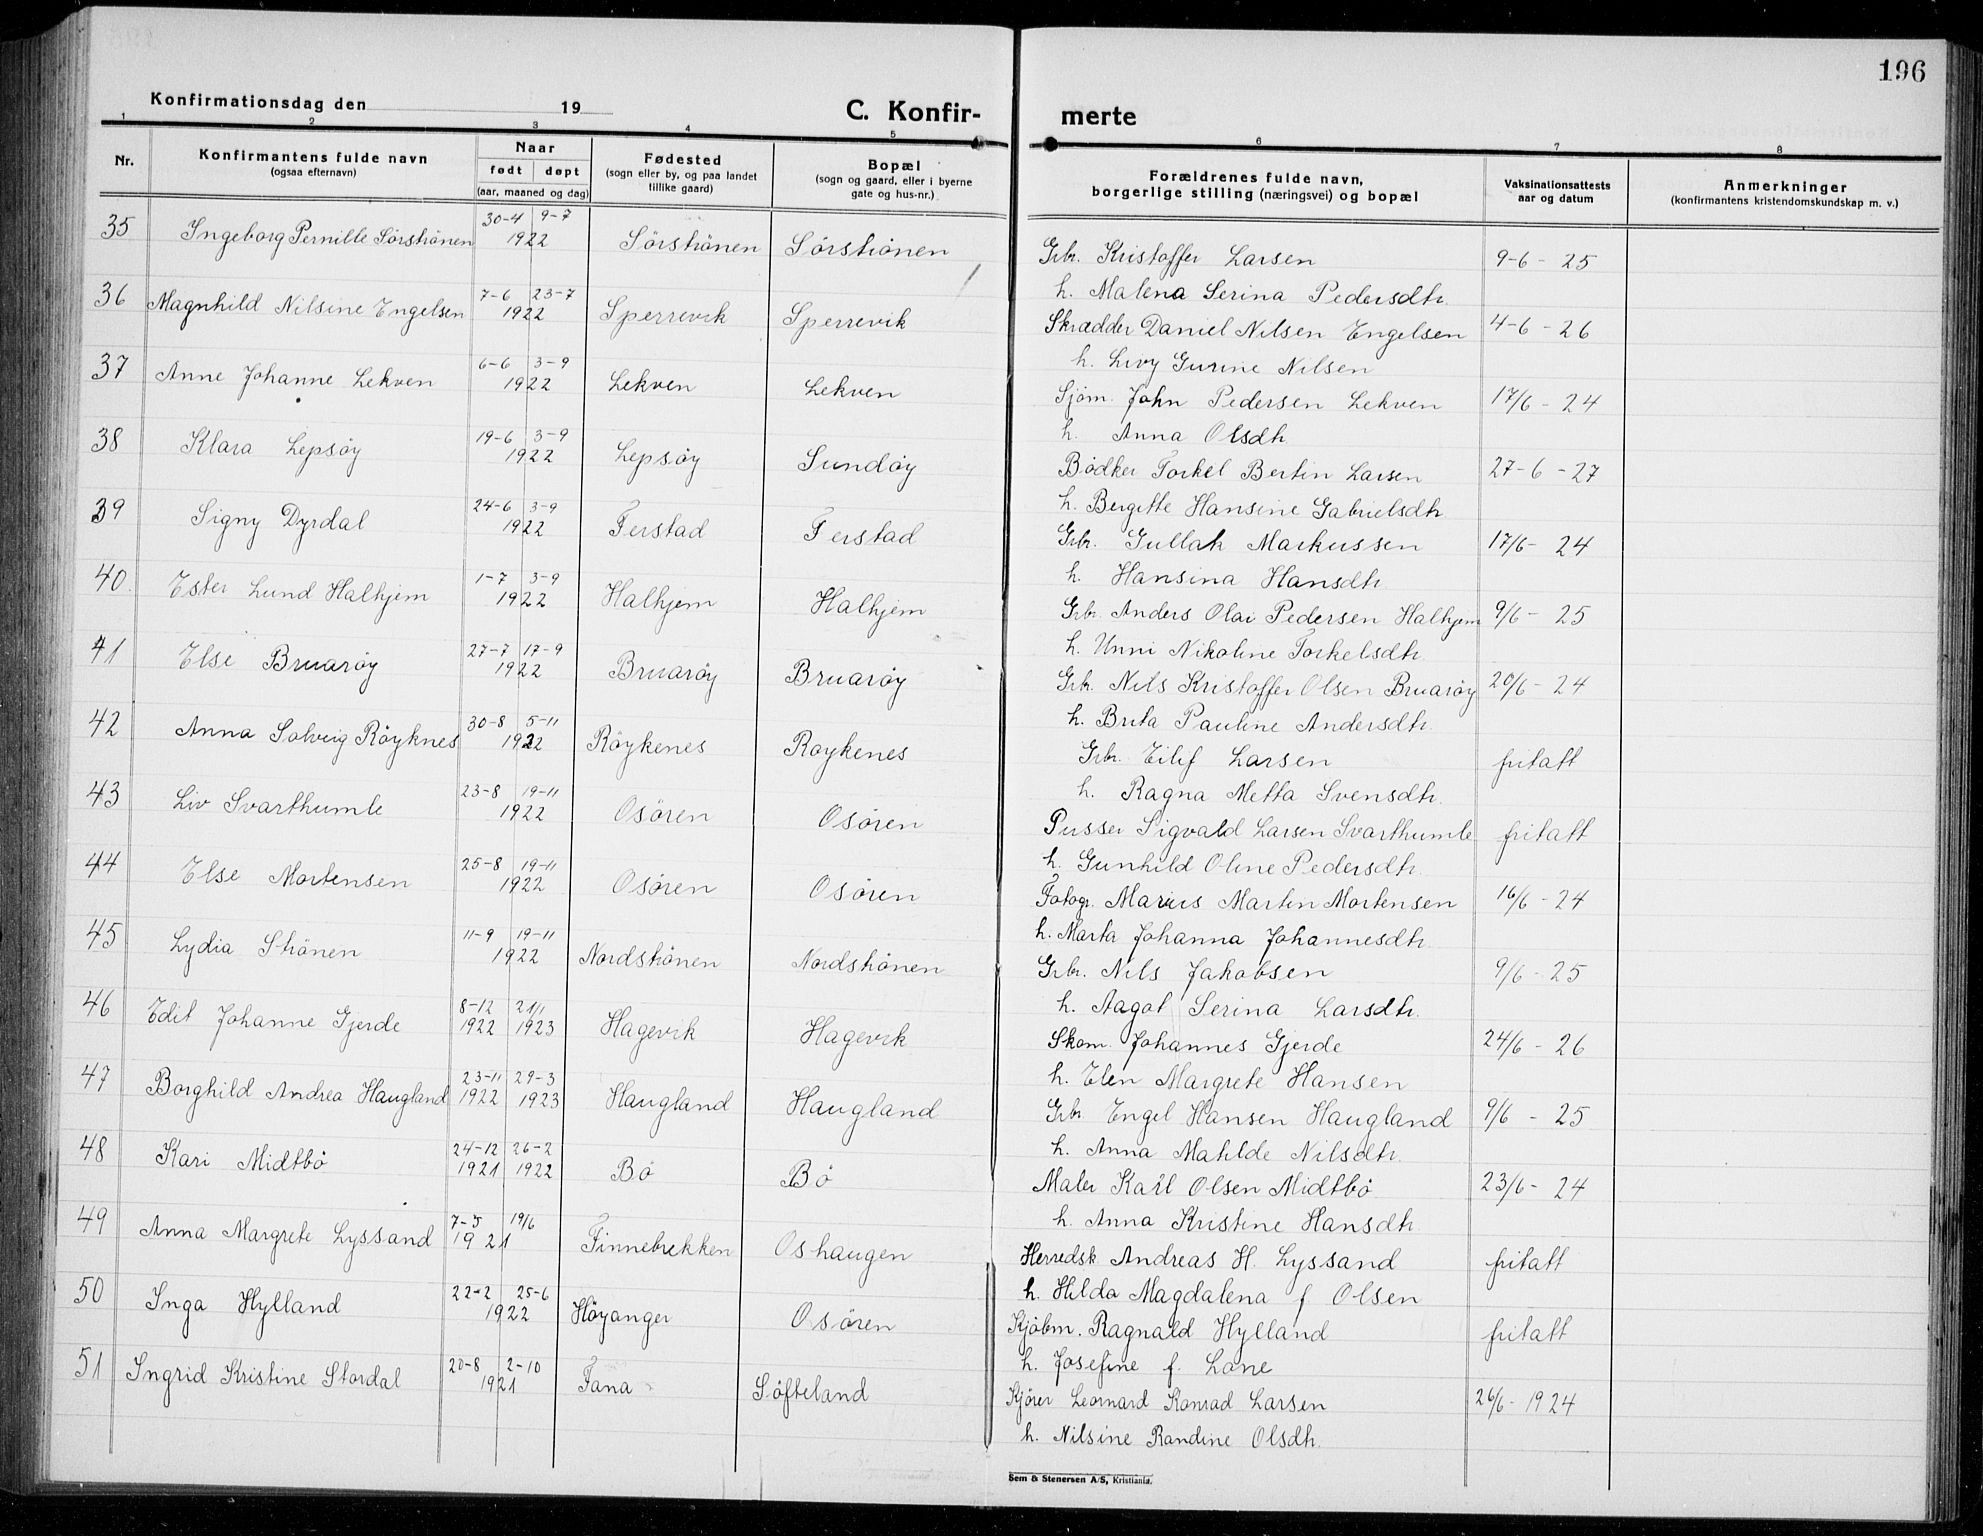 196
Konfirmationsdag den 19
C. Konfir-
merte
1 2 3 4 5 6 7 8
Nr.
Konfirmantens fulde navn
(ogsaa efternavn)
Naar
født døpt
(aar, maaned og dag)
Fødested
(sogn eller by, og paa landet
tillike gaard)
Bopæl
(sogn og gaard, eller i byerne
gate og hus-nr.)
Forældrenes fulde navn,
borgerlige stilling (næringsvei) og bopæl
Vaksinationsattests
aar og datum
Anmerkninger
(konfirmantens kristendomskundskap m. v.)
35 Ingeborg Pernille Sörströnen 30-4 9-7 1922 Sörströnen Sörströnen Grbr. Kristoffer Larsen 9-6-25
h. Malena Serina Pedersdtr.
36 Magnhild Nilsine Engelsen 7-6 23-7 1922 Sperrevik Sperrevik Skrædder Daniel Nilsen Engelsen 4-6-26
h. Livy Gurine Nilsen
37 Anne Johanne Lekven 6-6 3-9 1922 Lekven Lekven Sjöm. John Pedersen Lekven 17/6-24
h. Anna Olsdtr.
38 Klara Lepsöy 19-6 3-9 1922 Lepsöy Sundöy Bödker Torkel Bertin Larsen 27-6-27
h. Bergitte Hansine Gabrielsdtr.
39 Signy Dyrdal 24-6 3-9 1922 Ferstad Ferstad Grbr. Gullak Markussen 17/6-24
h. Hansina Hansdtr.
40. Ester Lund Halhjem 1-7 3-9 1922 Halhjem Halhjem Grbr. Anders Olai Pedersen Halhjem 9/6-25
h. Unni Nikoline Torkelsdtr.
41 Else Bruaröy 27-7 17-9 1922 Bruaröy Bruaröy Grbr. Nils Kristoffer Olsen Bruaröy 20/6-24
h. Brita Pauline Andersdtr.
42 Anna Solveig Röyknes 30-8 5-11 1922 Röykenes Roykenes Grbr. Eilif Larsen fritatt
h. Ragna Metta Svensdtr.
43 Liv Svarthumle 23-8 19-11 1922 Osören Osören Pusser Sigvald Larsen Svarthumle fritatt
h. Gunhild Oline Pedersdtr.
44 Else Mortensen 25-8 19-11 1922 Osören Osören Fotogr. Marius Martin Mortensen 16/6-24
h. Marta Johanna Johannesdtr.
45 Lydia Strönen 11-9 19-11 1922 Nordströnen Nordströnen Grbr. Nils Jakobsen 9/6-25
h. Aagot Serina Larsdtr.
46 Edit Johanne Gjerde 8-12 1922 21/1 1923 Hagevik Hagevik Skom. Johannes Gjerde 24/6-26
h. Elen Margrete Hansen
47 Borghild Andrea Haugland 23-11 1922 29-3 1923 Haugland Haugland Grbr Engel Hansen Haugland 9/6-25
h. Anna Matilde Nilsdtr.
48 Kari Midtbö 24-12 1921 26-2 1922 Bö Bö Maler Karl Olsen Midtbö 23/6-24
h. Anna Kristine Hansdtr.
49 Anna Margrete Lyssand 7-5 19/6 1921 Finnebrekken Oshaugen Herredsk Andreas H. Lyssand fritatt
h. Hilda Magdalena f Olsen
50 Inga Hylland 22-2 25-6 1922 Höyanger Osören Kjöbm. Ragnald Hylland fritatt
h. Josefine f. Lone
51 Ingrid Kristine Stordal 20-8 2-10 1921 Fana Söfteland Kjörer Leonard Konrad Larsen 26/6-1924
h. Nilsine Randine Olsdtr.
Sem & Stenersen A/S, Kristiania.